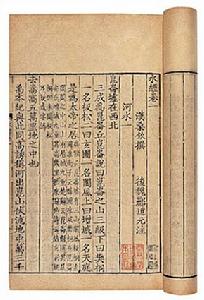 水經卷一
漢桑欽撰
後魏酈道元注
河水
崑崙墟在西北
三成爲崑崙丘崑崙說曰崑崙之山三級下曰樊桐
一名板松二曰玄圃一名閬風上曰增城一名天庭
是爲太帝之居
去嵩高五萬里地之中也
禹本紀與此同高誘稱河出崑山伏流地中萬三千